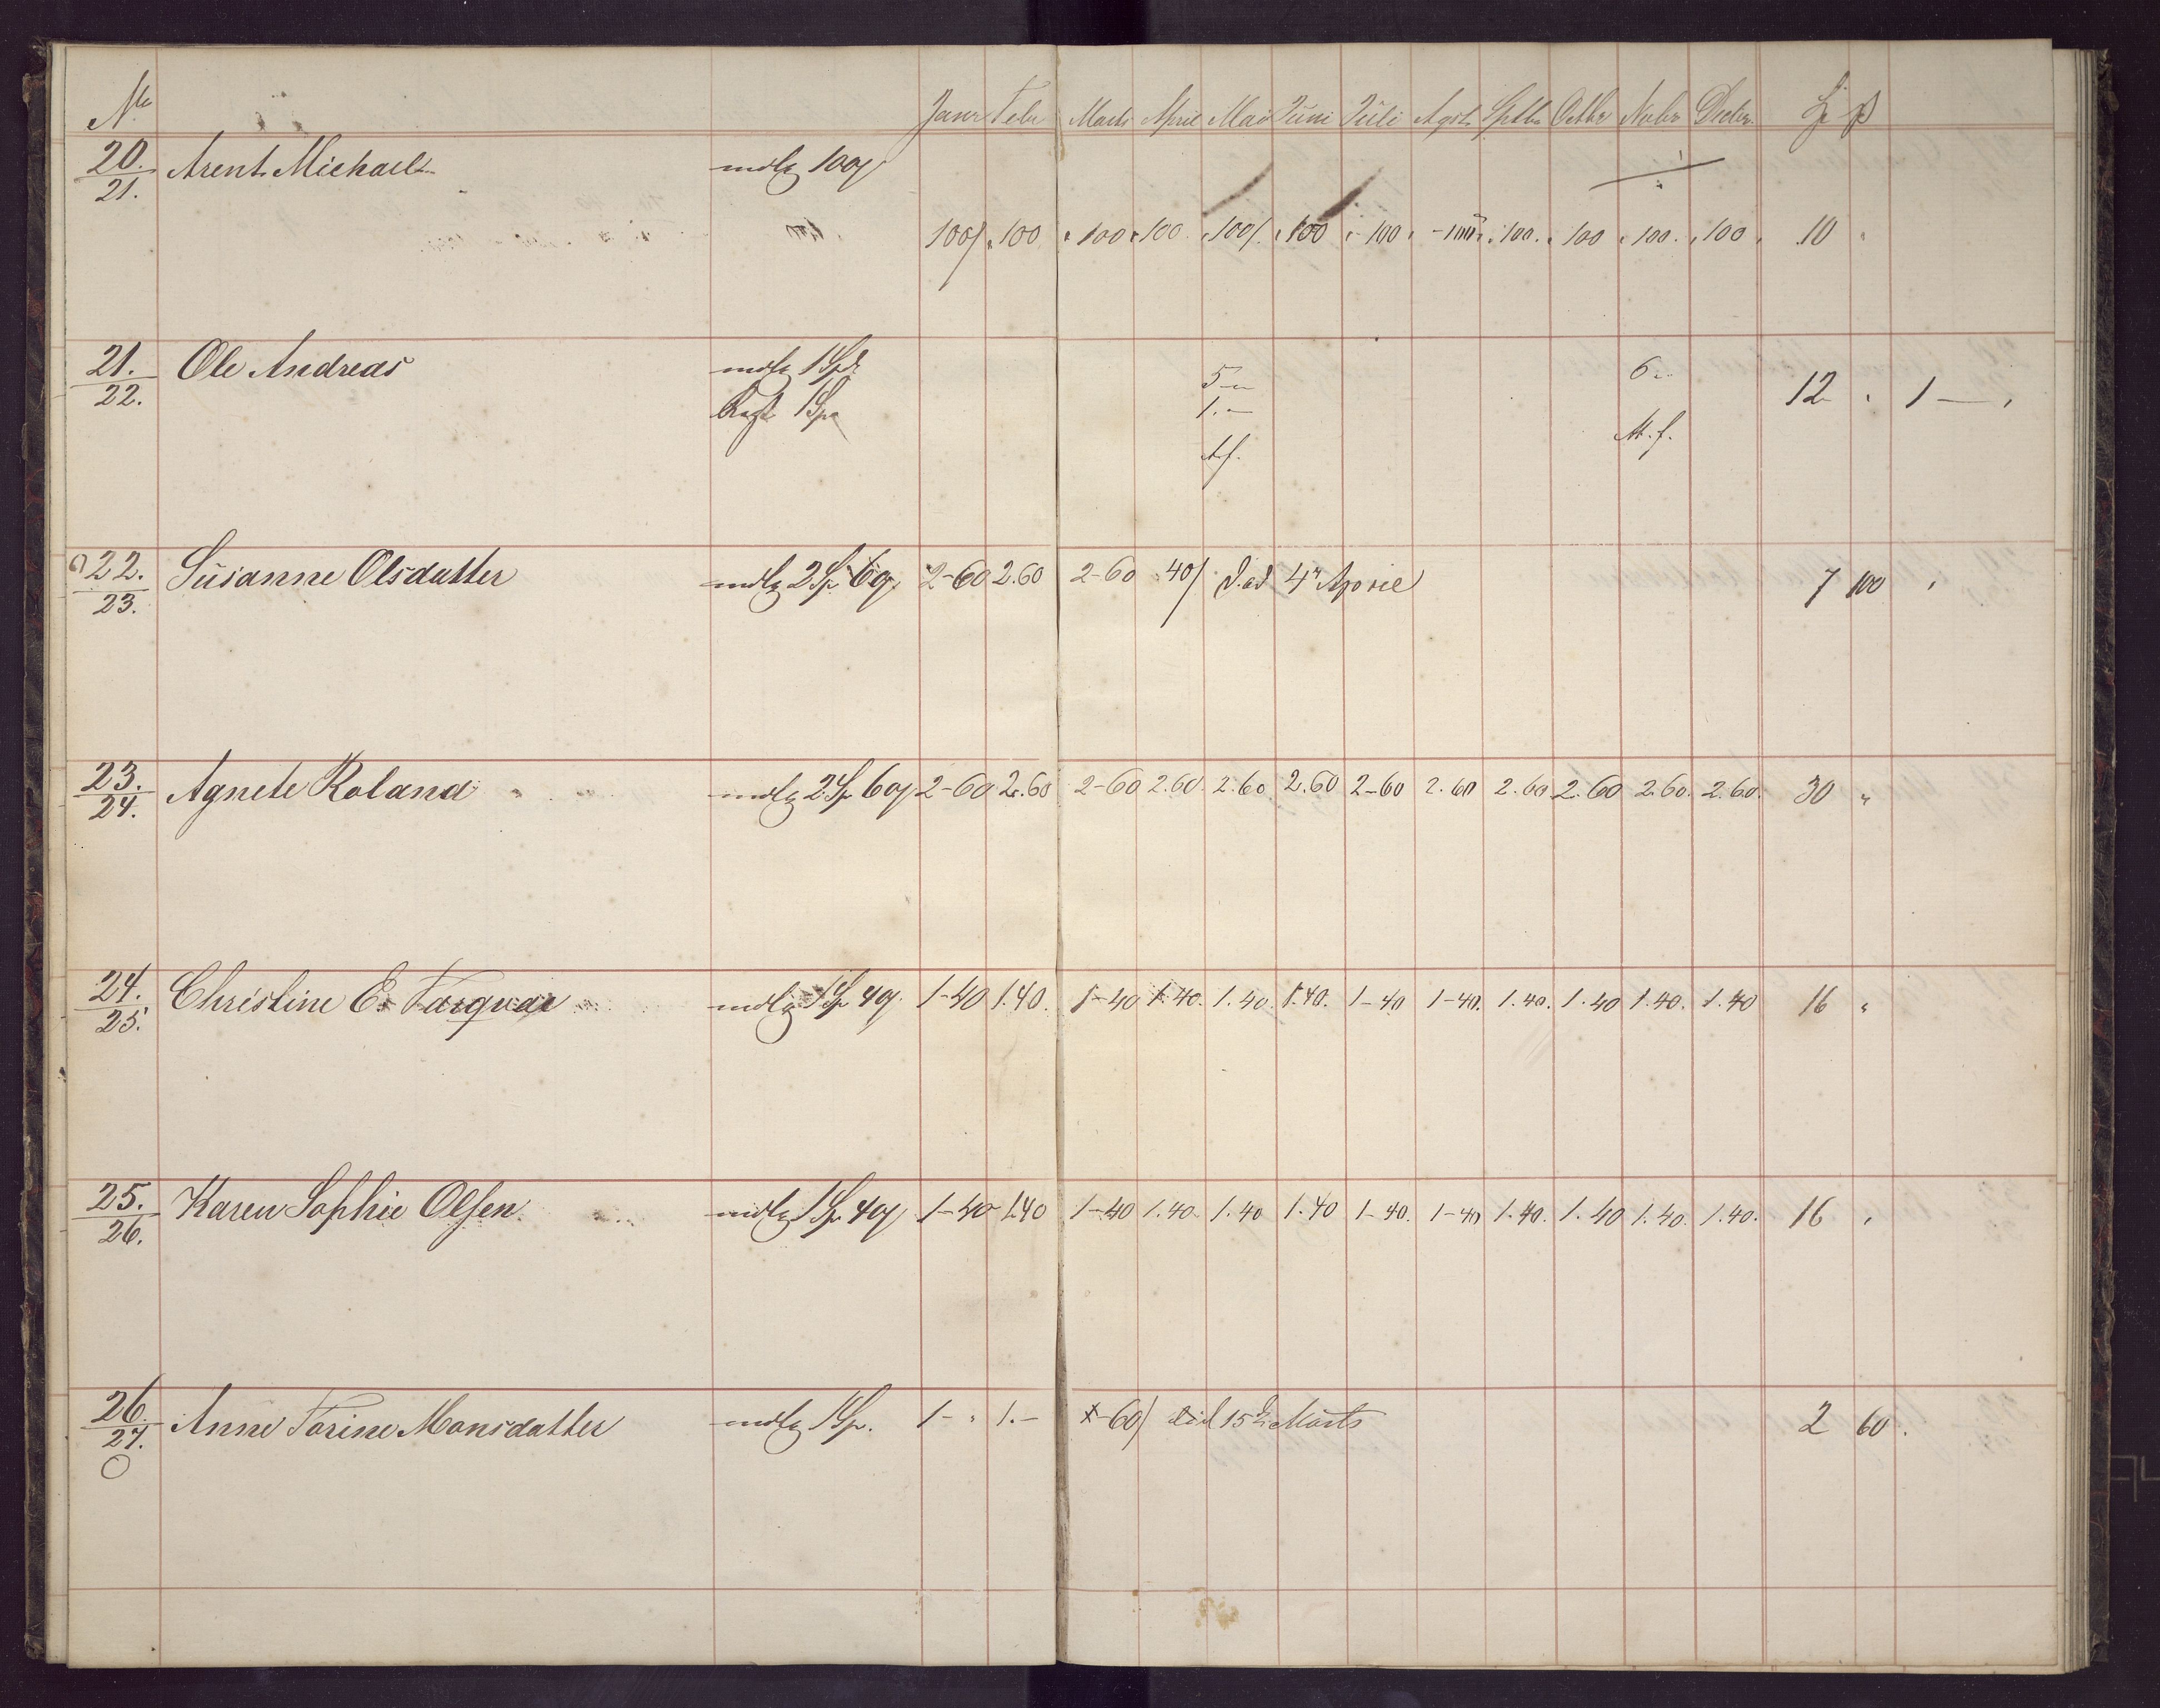 No Janr Febr Marts April Mai Juni Juli Agst Sptbr Octbr Novbr Decbr
20. Arent Michael mdlg 100
21.
100 100 100 100 100 100 100 100 100. 100 100. 100 10 "
21. Ole Andreas mdlg 1 Spd. 5 - 6 -
22. 1 Spd 1. - 12 " 1 —
22. Susanne Olsdatter mdlg 2 Sp 60 2-60 2.60 2-60 40 4 April 7 100
23.
23. Agnete Roland mdlg 2 Sp 60 2-60 2.60 2-60 2.60. 2.60. 2.60 2-60 2.60 2.60 2.60 2.60. 2.60. 30 "
24.
24. Christine E. Farquar mdlg 1 Sp 40 1-40 1.40. 1-40 1.40. 1.40. 1.40. 1-40 1-40. 1.40. 1.40 1.40. 1.40 16 "
25.
25. Karen Sophie Olsen mdlg 1 Sp 40 1-40 1.40 1-40 1.40. 1.40 1.40 1-40. 1-40 1.40. 1.40 1.40. 1.40. 16 "
26.
26. Anne Torine Monsdatter mdlg 1 Sp. 1- " 1.- 60 15 Marts 2 60.
27.